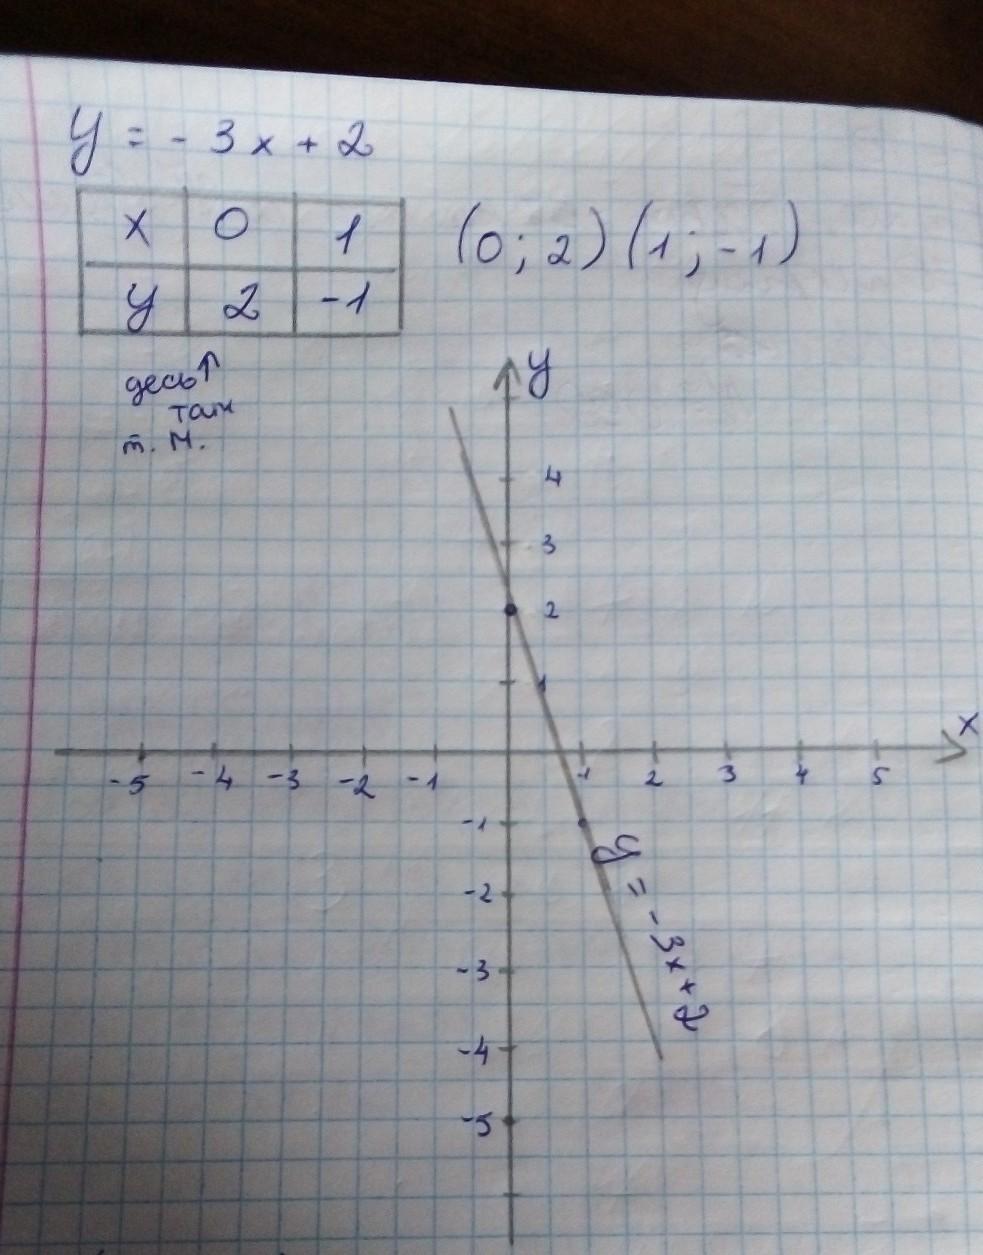 y = - 3x + 2
x 0 1
y 2 -1
(0; 2) (1; -1)
десь↑
там
т. М.
y
4
3
2
1
x
-5 -4 -3 -2 -1 1 2 3 4 5
-1
-2
-3
-4
-5
y = -3x+2